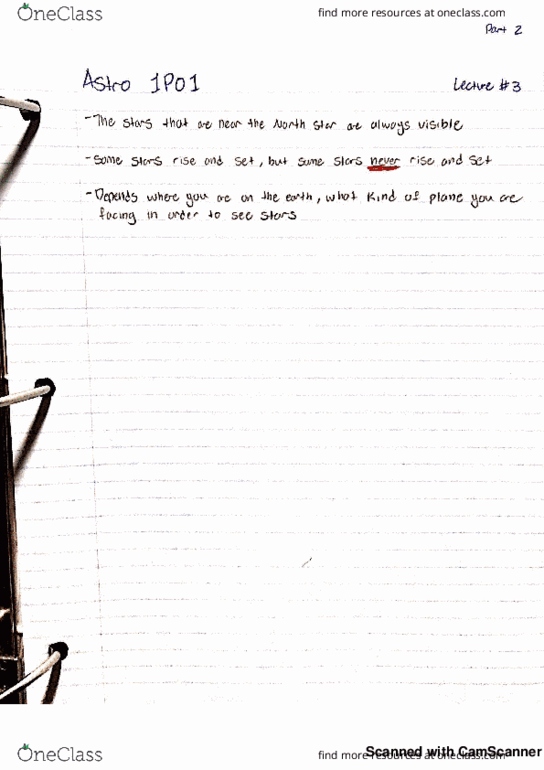 OneClass
find more resources at oneclass.com
Part 2
Astro 1P01
Lecture #3
- The stars that are near the North Star are always visible
- Some stars rise and set, but some stars never rise and set
- Depends where you are on the earth, what kind of plane you are
facing in order to see stars
OneClass
find more resources at oneclass.com
Scanned with CamScanner